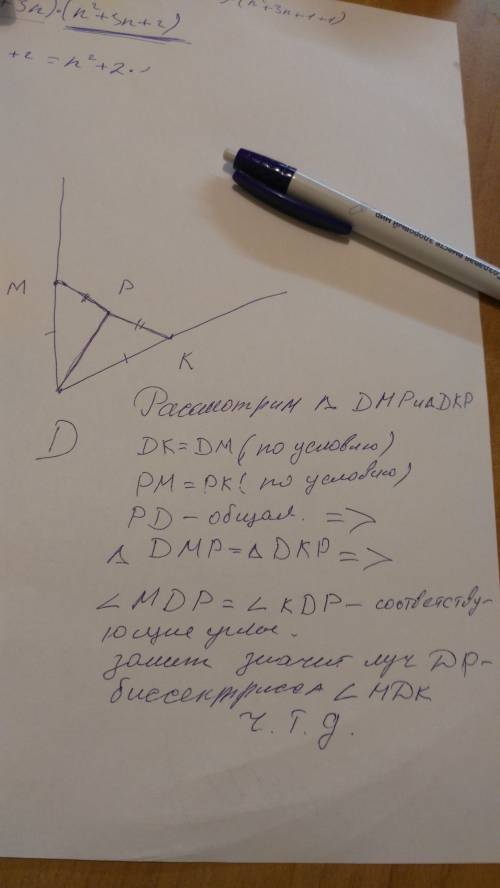 +3n)·(n²+3n+2)
(n²+3n+1+1)
+2 = n²+2·
M
P
K
D
Рассмотрим Δ DMP и ΔDKP
DK=DM (по условию)
PM=PK (по условию)
PD – общая. =>
Δ DMP=ΔDKP=>
∠MDP=∠KDP – соответству-
ющие углы.
значит луч DP-
биссектриса ∠MDK
Ч.Т.д.